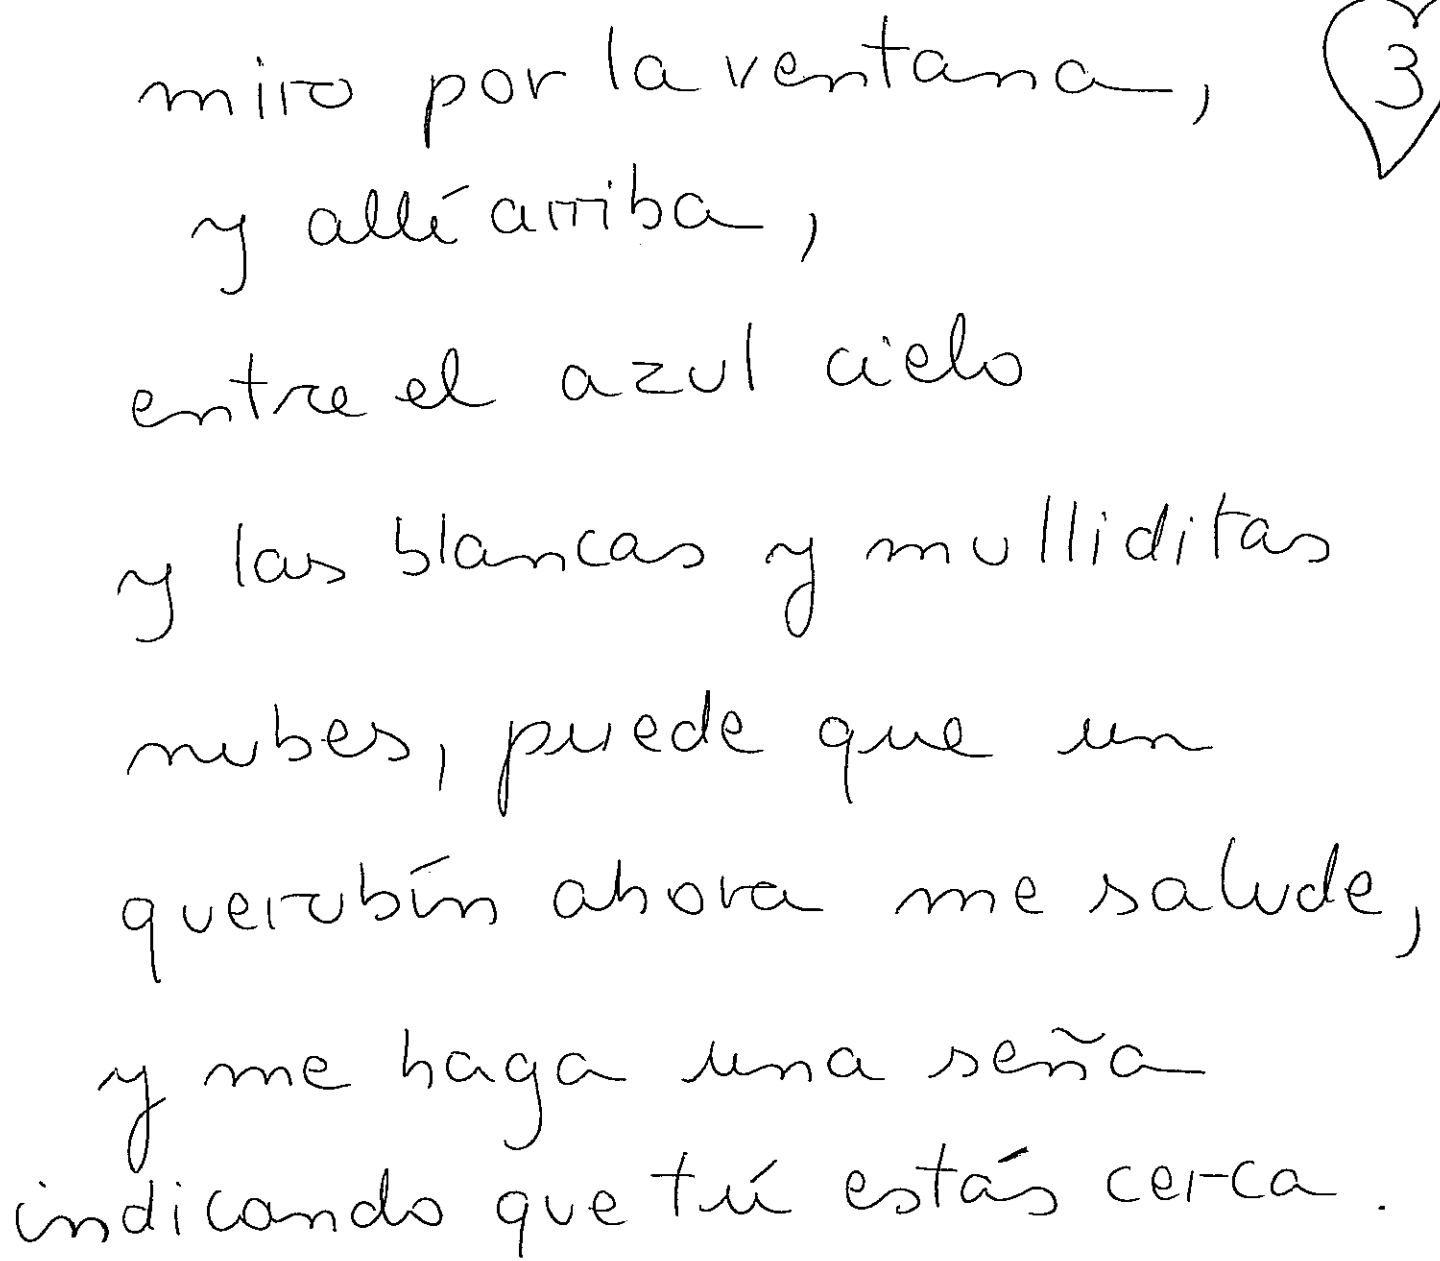 miro por la ventana,
3
y allí arriba,
entre el azul cielo
y las blancas y mulliditas
nubes, puede que un
querubín ahora me salude,
y me haga una seña
indicando que tú estás cerca.